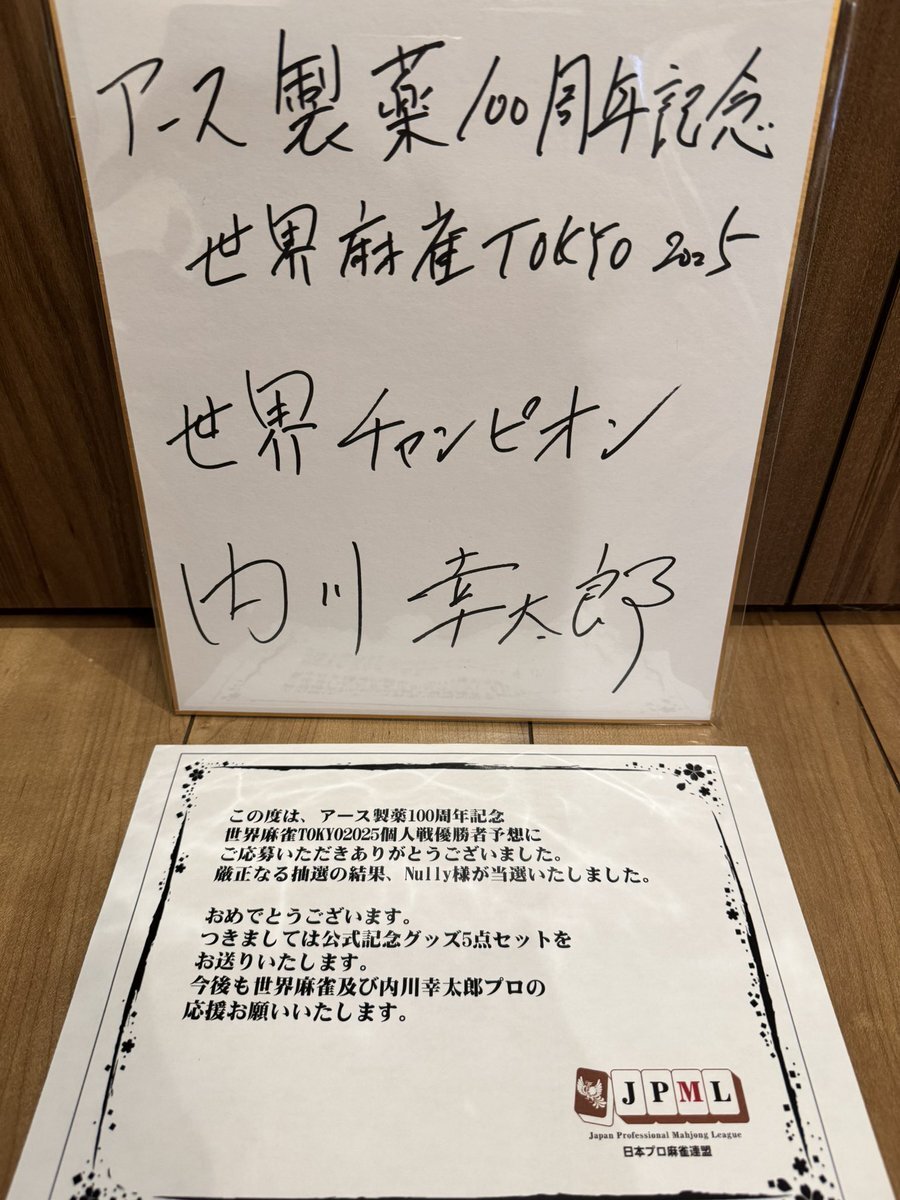 アース製薬100周年記念
世界麻雀TOKYO 2025
世界チャンピオン
内川幸太郎
この度は、アース製薬100周年記念
世界麻雀TOKYO2025個人戦優勝者予想に
ご応募いただきありがとうございました。
厳正なる抽選の結果、Nully様が当選いたしました。
おめでとうございます。
つきましては公式記念グッズ5点セットを
お送りいたします。
今後も世界麻雀及び内川幸太郎プロの
応援お願いいたします。
JPML
Japan Professional Mahjong League
日本プロ麻雀連盟